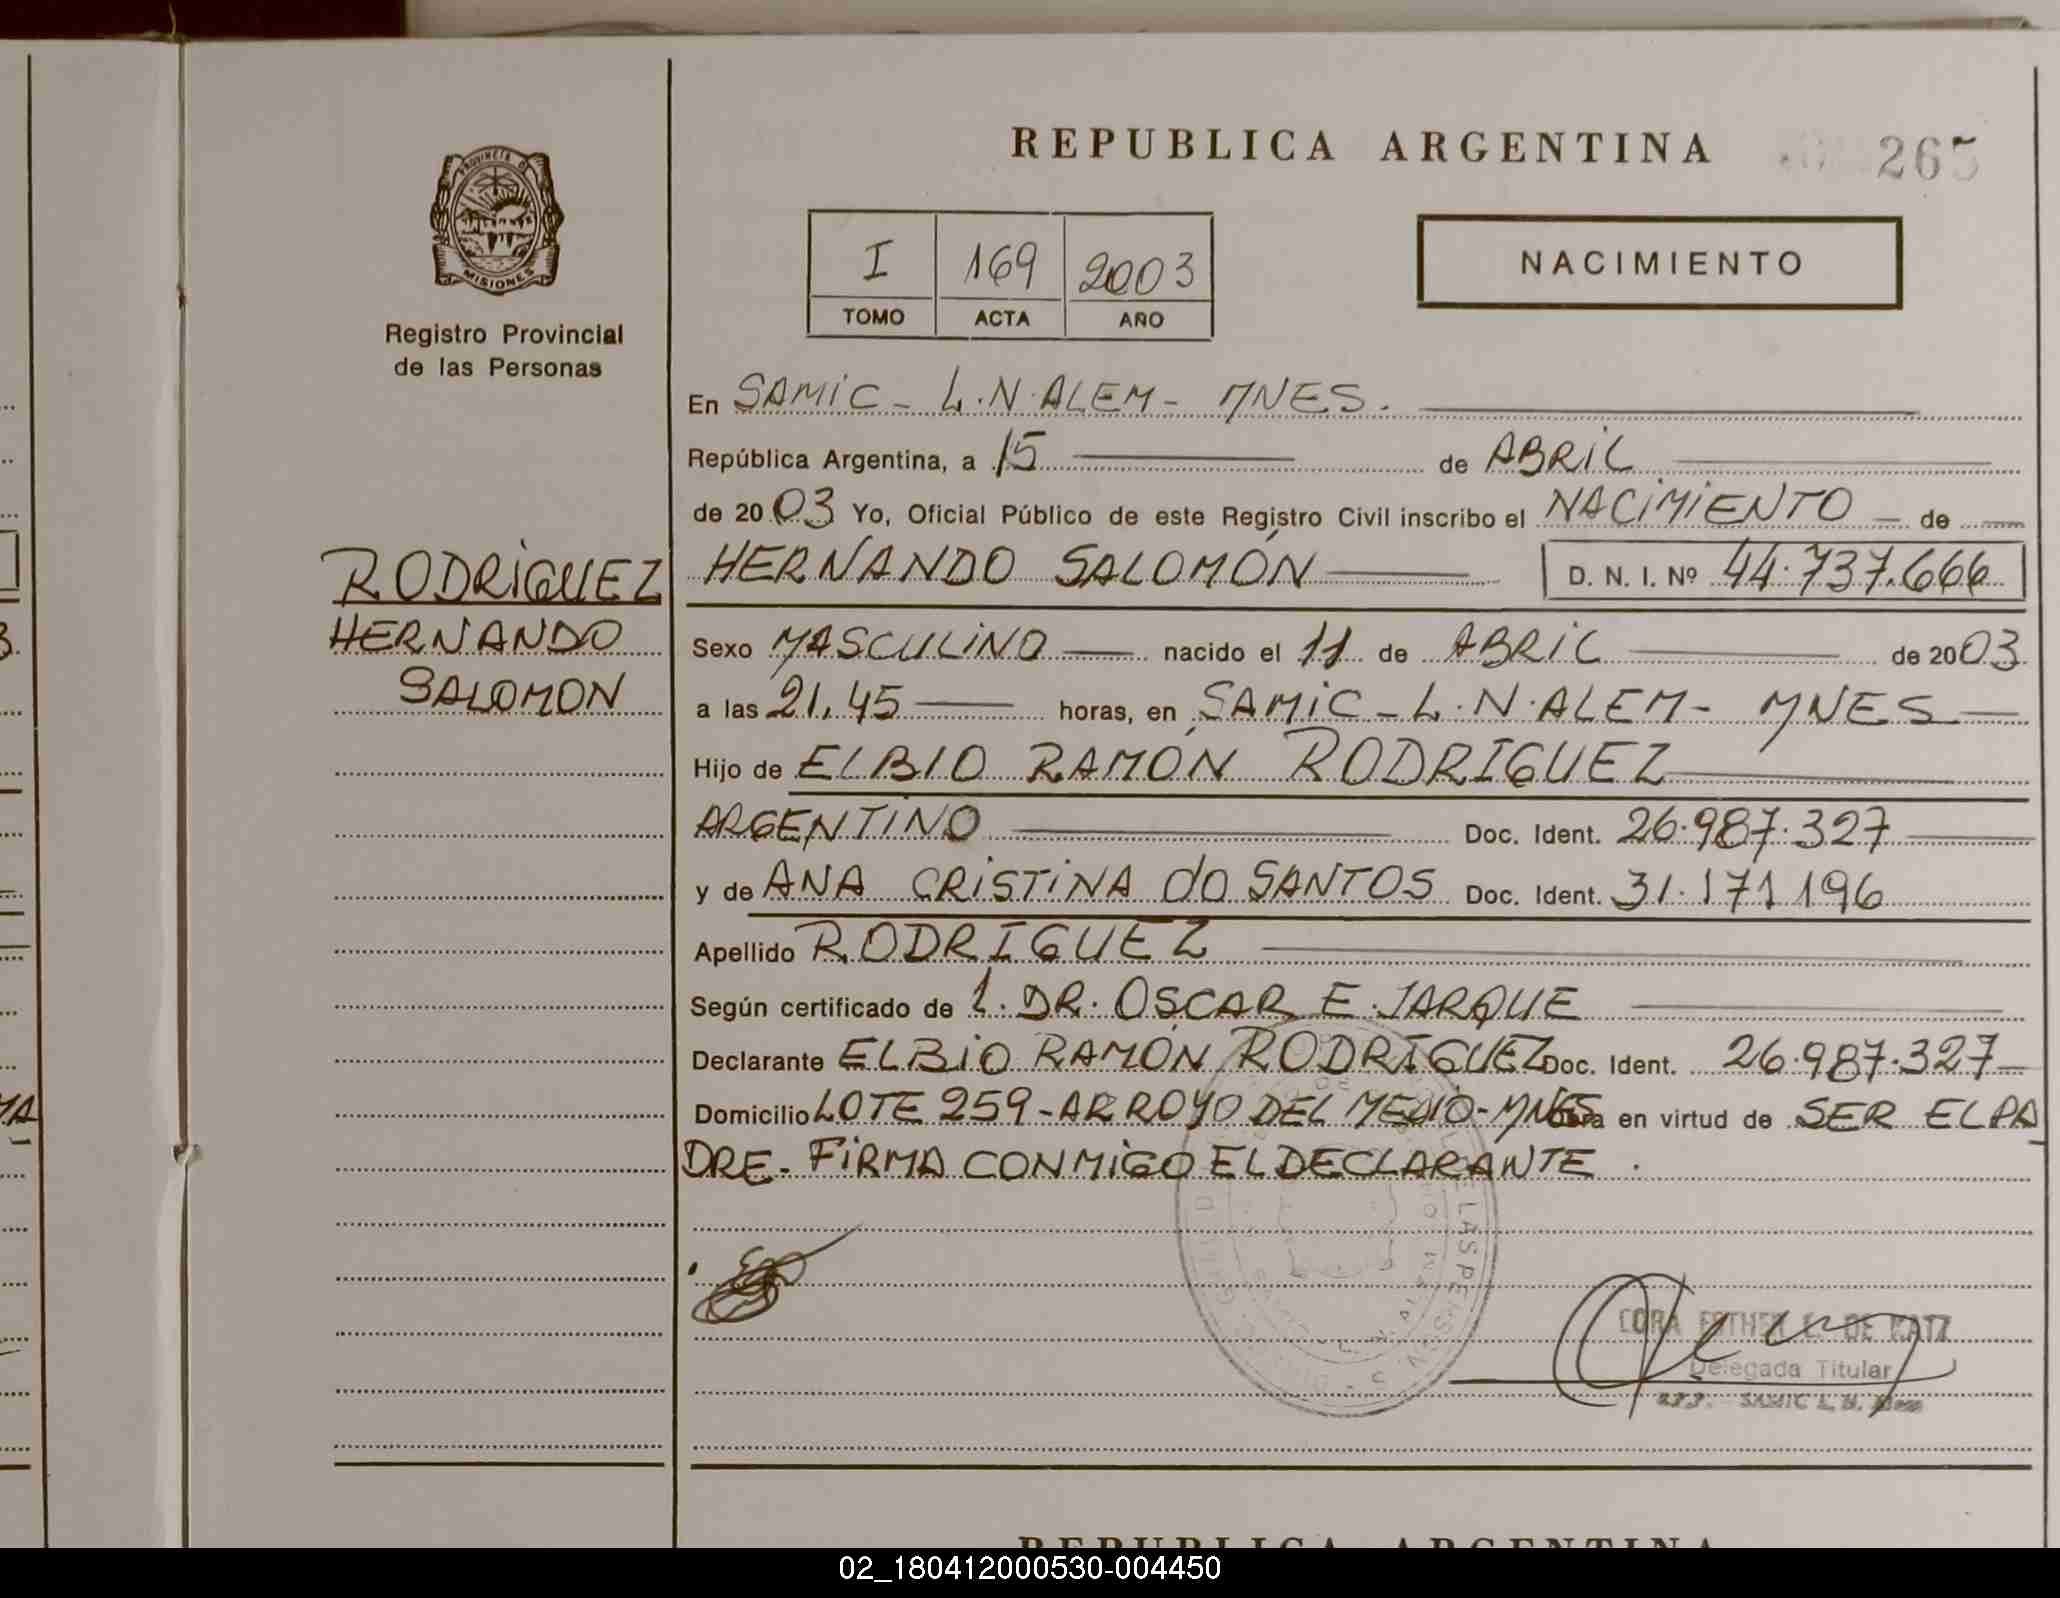 REPUBLICA ARGENTINA
265
PROVINCIA DE
MISIONES
Registro Provincial
de las Personas
I 169 2003
TOMO ACTA AÑO
NACIMIENTO
En SAMIC - L.N.ALEM - MNES.
República Argentina, a 15 de ABRIL
de 2003 Yo, Oficial Público de este Registro Civil inscribo el NACIMIENTO de
RODRIGUEZ
HERNANDO
SALOMON
HERNANDO SALOMÓN D. N. I. Nº 44.737.666
Sexo MASCULINO nacido el 11 de ABRIL de 2003
a las 21,45 horas, en SAMIC - L.N.ALEM - MNES
Hijo de ELBIO RAMÓN RODRIGUEZ
ARGENTINO Doc. Ident. 26.987.327
y de ANA CRISTINA dO SANTOS Doc. Ident. 31.171.196
Apellido RODRIGUEZ
Según certificado de 1. DR. OSCAR E. JARQUE
Declarante ELBIO RAMÓN RODRIGUEZ Doc. Ident. 26.987.327
Domicilio LOTE 259 - ARROYO DEL MEDIO - MNES obra en virtud de SER EL PA
DRE. FIRMA CONMIGO EL DECLARANTE.
CORA ESTHER DE KATZ
Delegada Titular
SAMIC L. N. Alem
REPUBLICA ARGENTINA
02_180412000530-004450